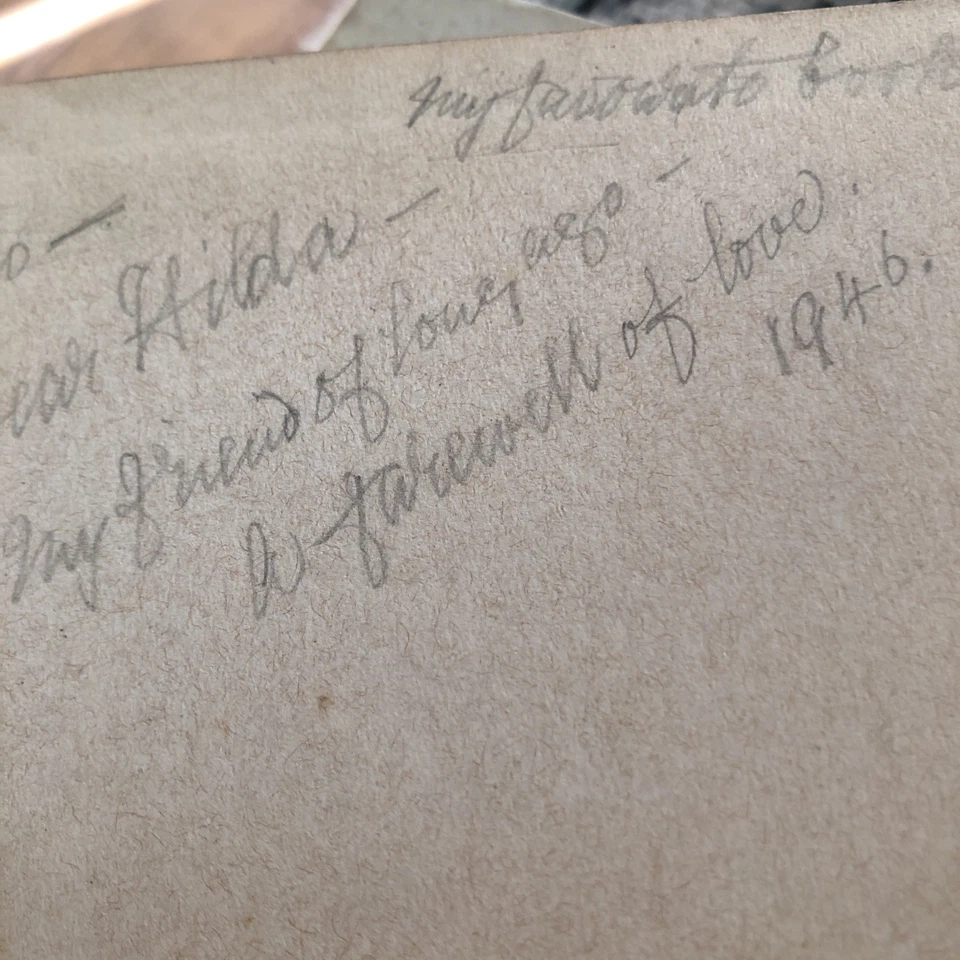 My favowato book
o —
ear Hilda —
My friend of long ago —
A farewell of love.
1946.